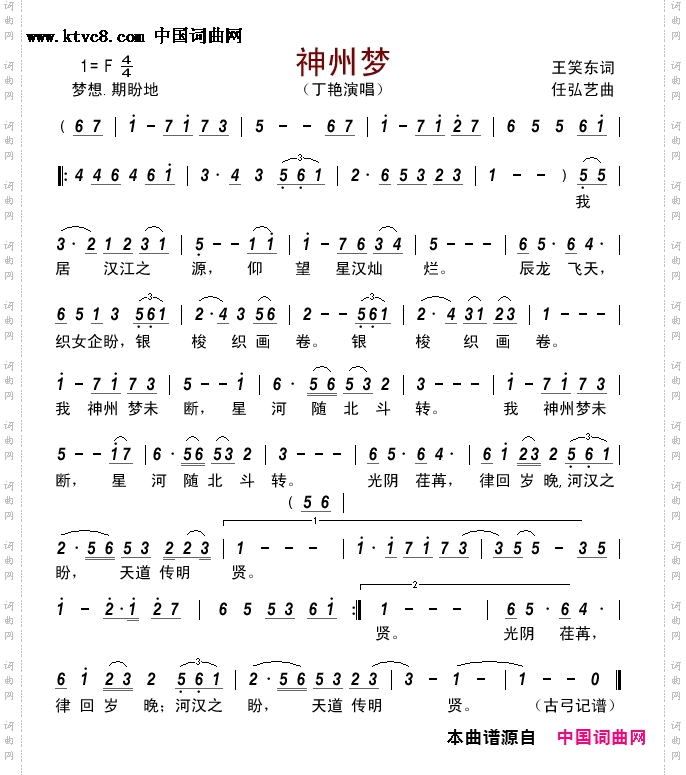 www.ktvc8.com 中国词曲网
神州梦
1= F 4/4
王笑东词
梦想.期盼地
（丁艳演唱）
任弘艺曲
( 6 7 | 1 - 7 1 7 3 | 5 - - 6 7 | 1 - 7 1 2 7 | 6 5 5 6 1 |
|: 4 4 6 4 6 1 | 3 · 4 3 5 6 1 | 2 · 6 5 3 2 3 | 1 - - ) 5 5 |
我
3 · 2 1 2 3 1 | 5 - - 1 1 | 1 - 7 6 3 4 | 5 - - - | 6 5 · 6 4 · |
居 汉江之 源， 仰 望 星汉灿 烂。 辰龙 飞天，
6 5 1 3 5 6 1 | 2 · 4 3 5 6 | 2 - - 5 6 1 | 2 · 4 3 1 2 3 | 1 - - - |
织女企盼，银 梭 织 画 卷。 银 梭 织 画 卷。
1 - 7 1 7 3 | 5 - - 1 | 6 · 5 6 5 3 2 | 3 - - - | 1 - 7 1 7 3 |
我 神州 梦未 断， 星 河 随 北 斗 转。 我 神州梦未
5 - - 1 7 | 6 · 5 6 5 3 2 | 3 - - - | 6 5 · 6 4 · | 6 1 2 3 2 5 6 1 |
断， 星 河 随 北 斗 转。 光阴 荏苒， 律回 岁 晚,河汉之
( 5 6 |
2 · 5 6 5 3 2 2 3 | 1 - - - | 1 · 1 7 1 7 3 | 3 5 5 - - 3 5 |
盼， 天道 传明 贤。
1 - 2 · 1 2 7 | 6 5 5 3 6 1 :| 1 - - - | 6 5 · 6 4 · |
贤。 光阴 荏苒，
6 1 2 3 2 5 6 1 | 2 · 5 6 5 3 2 3 | 1 - - - | 1 - - 0 ||
律 回 岁 晚；河汉之 盼， 天道 传明 贤。 （古弓记谱）
本曲谱源自 中国词曲网